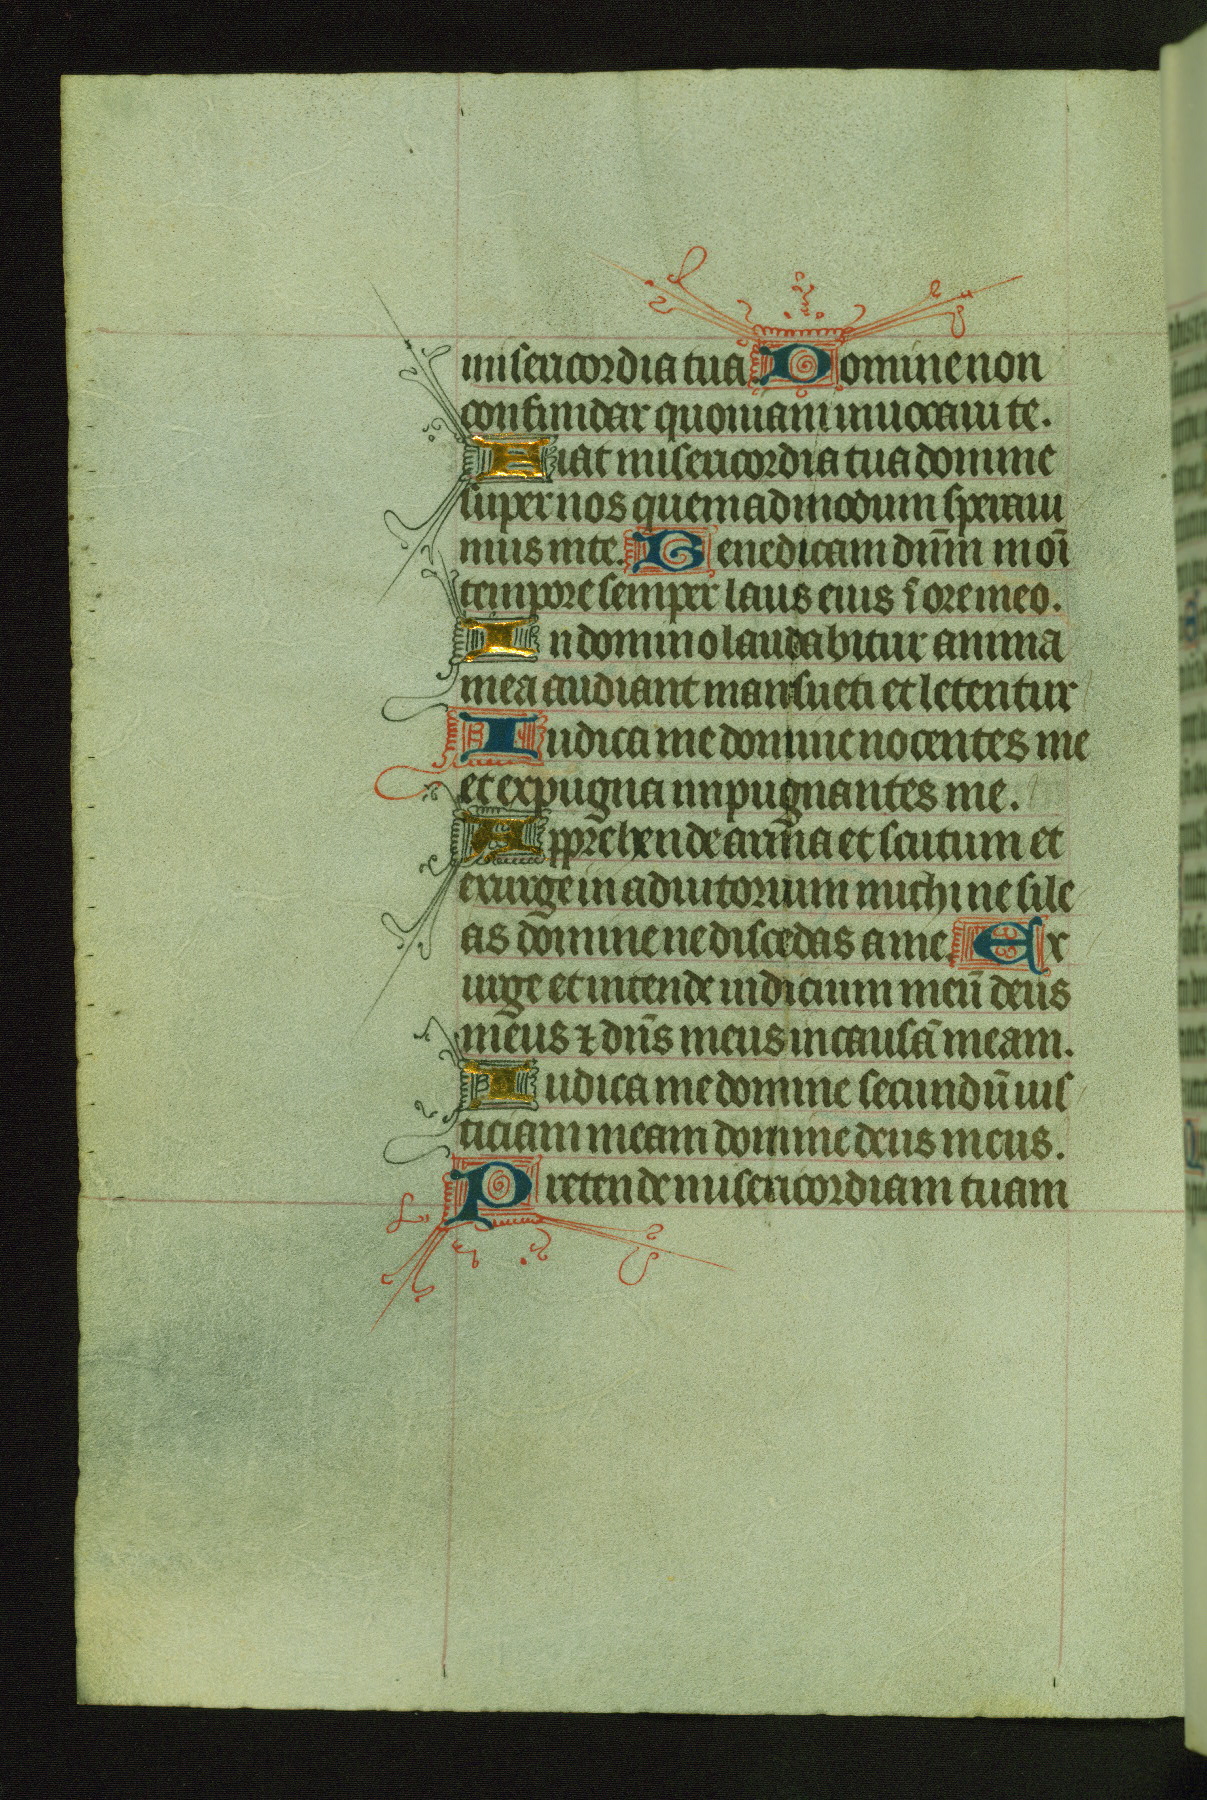 misericordia tua Domine non
confundar quoniam inuocaui te.
Fiat misericordia tua domine
super nos quemadmodum speraui
mus in te. Benedicam dn̄m in oī
tempore semper laus eius ī ore meo.
In domino laudabitur anima
mea audiant mansueti et letentur
Iudica me domine nocentes me
et expugna inpugnantes me.
Apprehende arma et scutum et
exurge in adiutorium michi ne sile
as domine ne discedas a me. Ex
urge et intende iudicium meū deus
meus ⁊ dn̄s meus in causā meam.
Iudica me domine secundū ius
ticiam meam domine deus meus.
Pretende misericordiam tuam